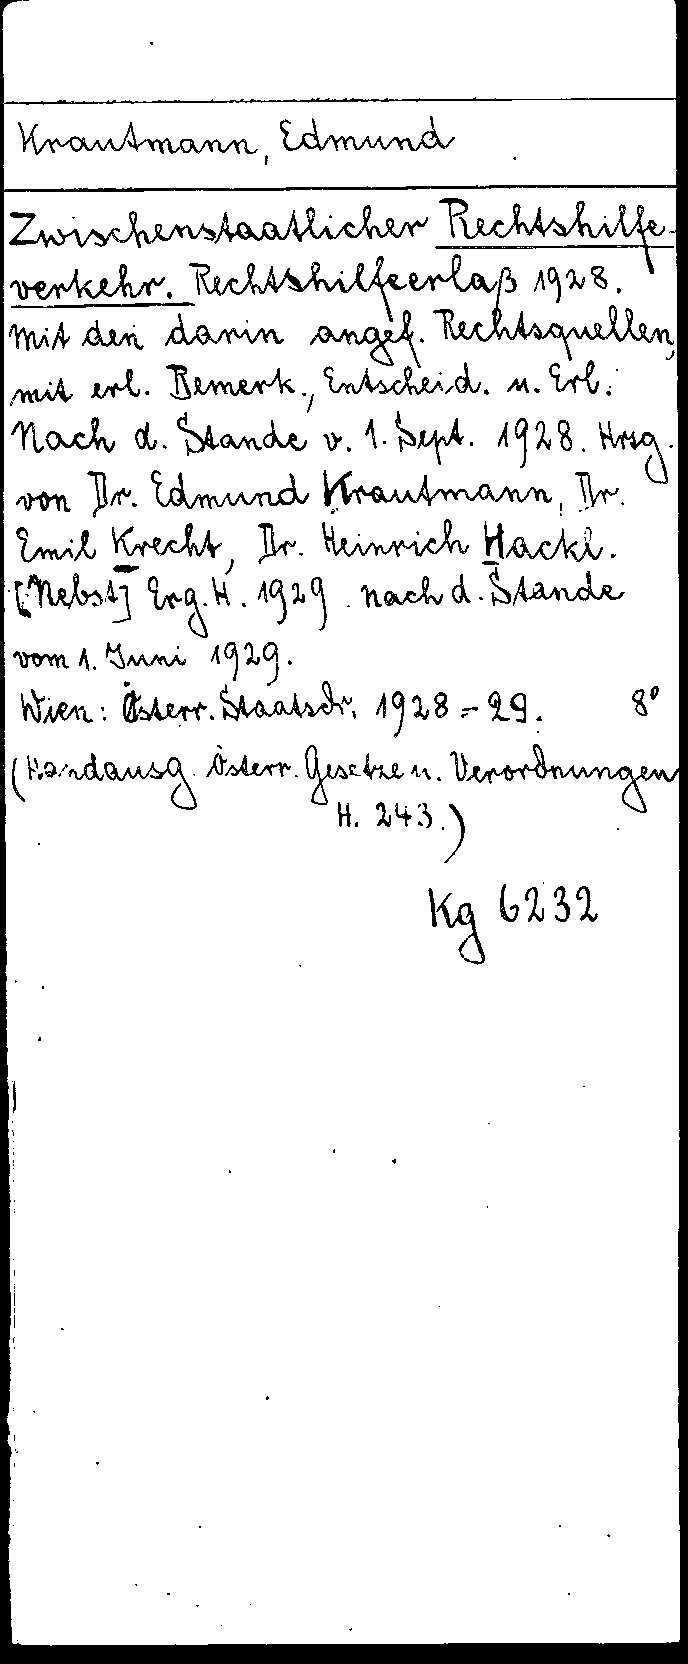 Krautmann, Edmund
Zwischenstaatlicher Rechtshilfe-
verkehr. Rechtshilfeerlaß 1928.
Mit den darin angef. Rechtsquellen,
mit erl. Bemerk., Entscheid. u. Erl.
Nach d. Stande v. 1. Sept. 1928. Hrsg.
von Dr. Edmund Krautmann, Dr.
Emil Krecht, Dr. Heinrich Hackl.
[Nebst] Erg. H. 1929 nach d. Stande
vom 1. Juni 1929.
Wien: Österr. Staatsdr. 1928-29. 8°
(Handausg. österr. Gesetze u. Verordnungen
H. 243.)
Kg 6232